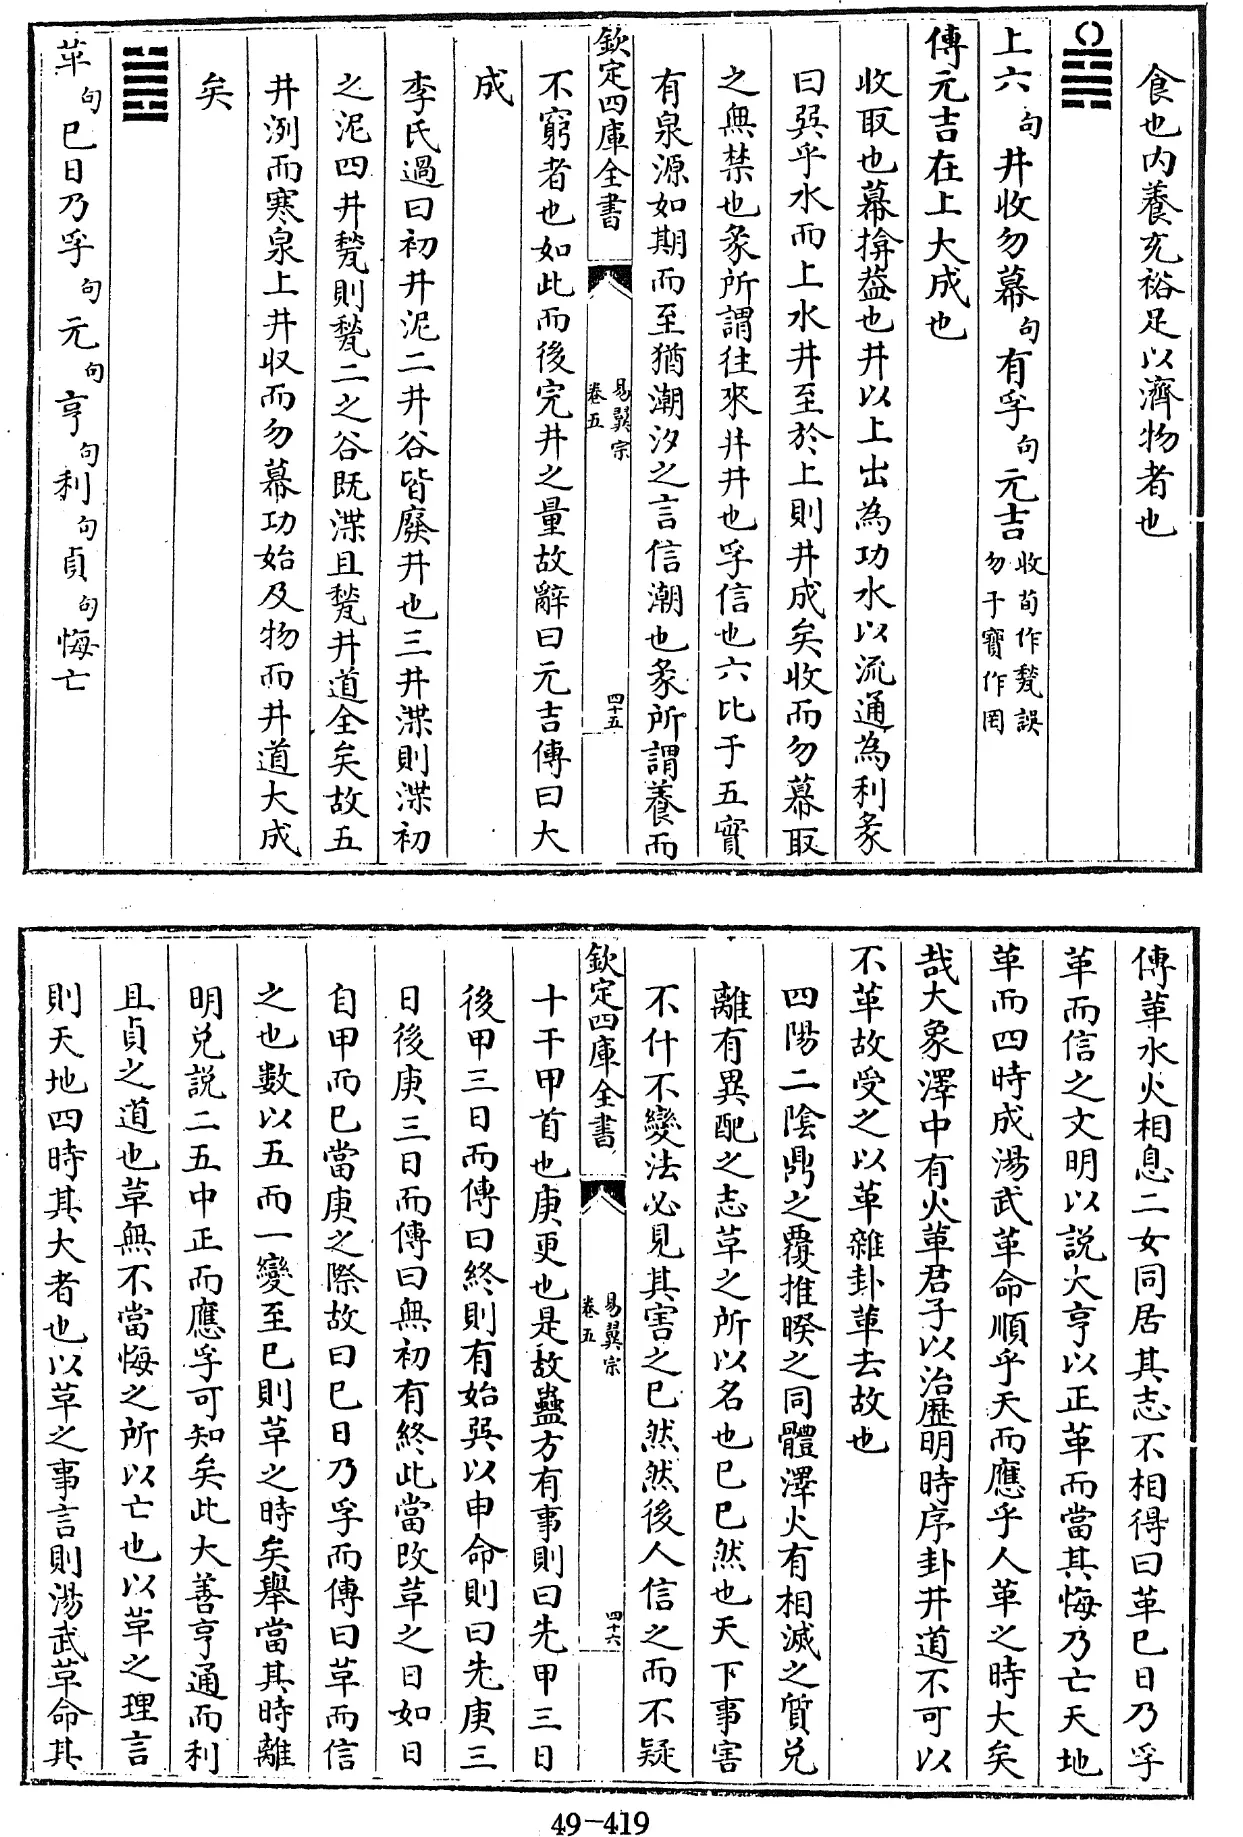 食也内養充裕足以濟物者也
上六句井收勿幕句有孚句元吉收荀作甃誤勿于寶作罔
傳元吉在上大成也
收取也幕揜葢也井以上出為功水以流通為利彖
曰巽乎水而上水井至於上則井成矣收而勿幕取
之無禁也彖所謂往來井井也孚信也六比于五實
有泉源如期而至猶潮汐之言信潮也彖所謂養而
欽定四庫全書
易翼宗
卷五
四十五
不窮者也如此而後完井之量故辭曰元吉傳曰大
成
李氏過曰初井泥二井谷皆廢井也三井渫則渫初
之泥四井甃則甃二之谷既渫且甃井道全矣故五
井洌而寒泉上井収而勿幕功始及物而井道大成
矣
革句巳日乃孚句元句亨句利句貞句悔亡
傳革水火相息二女同居其志不相得曰革巳日乃孚
革而信之文明以説大亨以正革而當其悔乃亡天地
革而四時成湯武革命順乎天而應乎人革之時大矣
哉大象澤中有火革君子以治歷明時序卦井道不可以
不革故受之以革雜卦革去故也
四陽二陰鼎之覆推暌之同體澤火有相滅之質兑
離有異配之志革之所以名也巳巳然也天下事害
不什不變法必見其害之巳然然後人信之而不疑
欽定四庫全書
易翼宗
卷五
四十六
十干甲首也庚更也是故蠱方有事則曰先甲三日
後甲三日而傳曰終則有始巽以申命則曰先庚三
日後庚三日而傳曰無初有終此當改革之日如日
自甲而巳當庚之際故曰巳日乃孚而傳曰革而信
之也數以五而一變至巳則革之時矣舉當其時離
明兑説二五中正而應孚可知矣此大善亨通而利
且貞之道也革無不當悔之所以亡也以革之理言
則天地四時其大者也以革之事言則湯武革命其
49-419